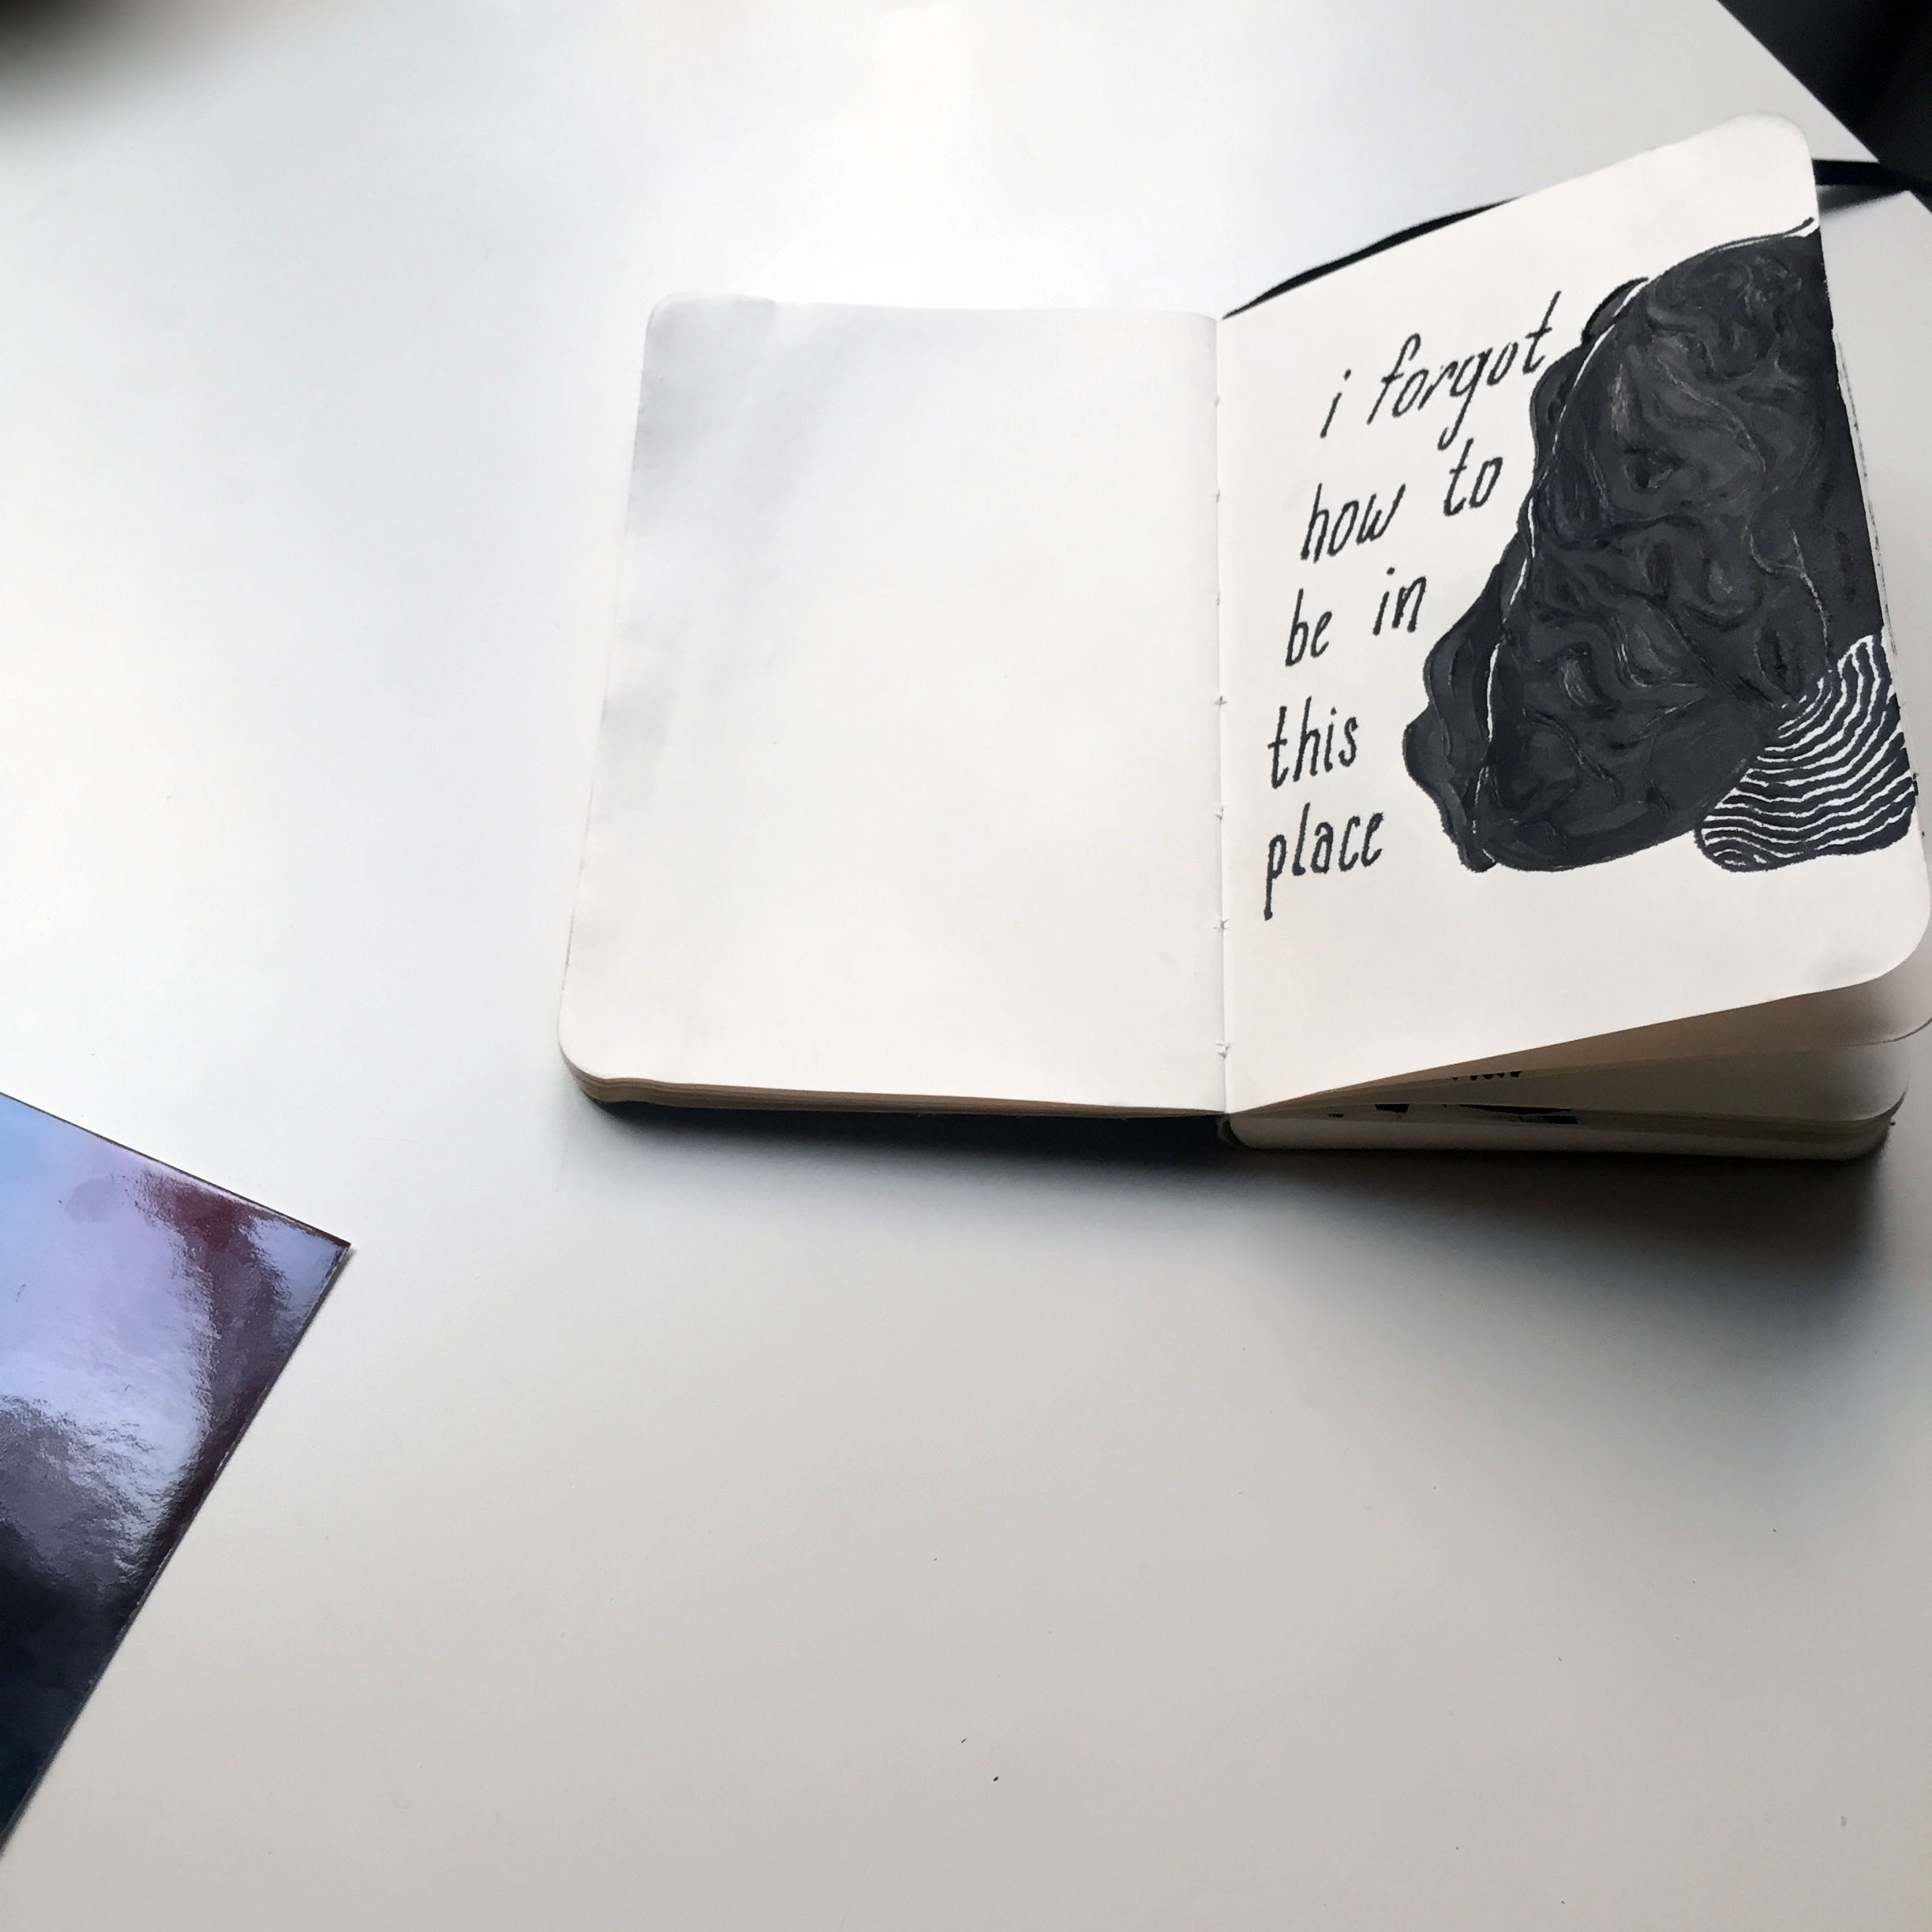 i forgot
how to
be in
this
place